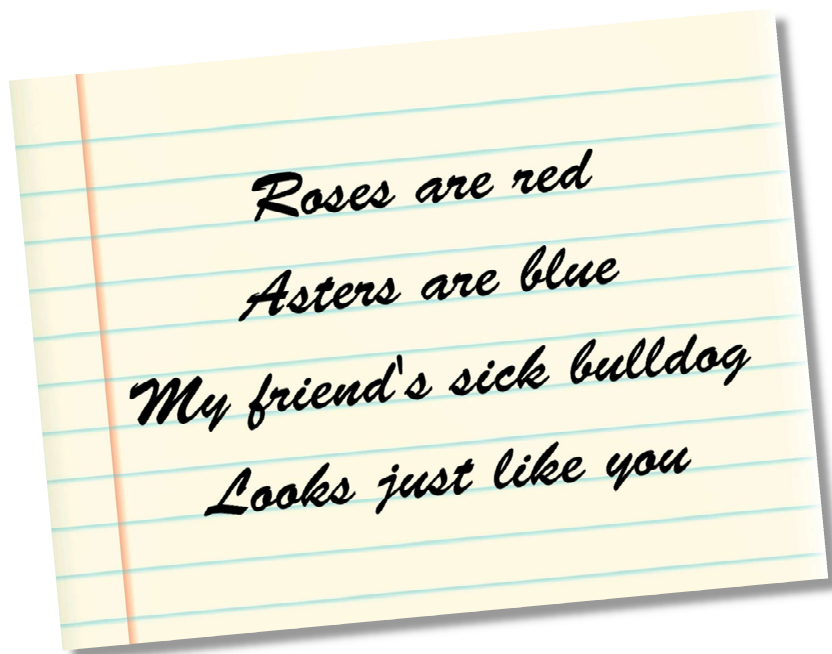 Roses are red
Asters are blue
My friend's sick bulldog
Looks just like you